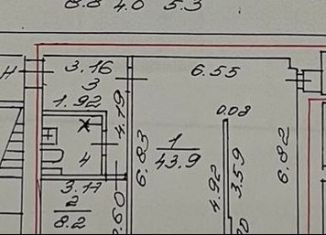 8.8 4.0 5.3
3.16
6.55
3
1.92
4.19
0.08
1
43.9
6.83
4
4.92
3.59
6.82
3.17
2
8.2
.60